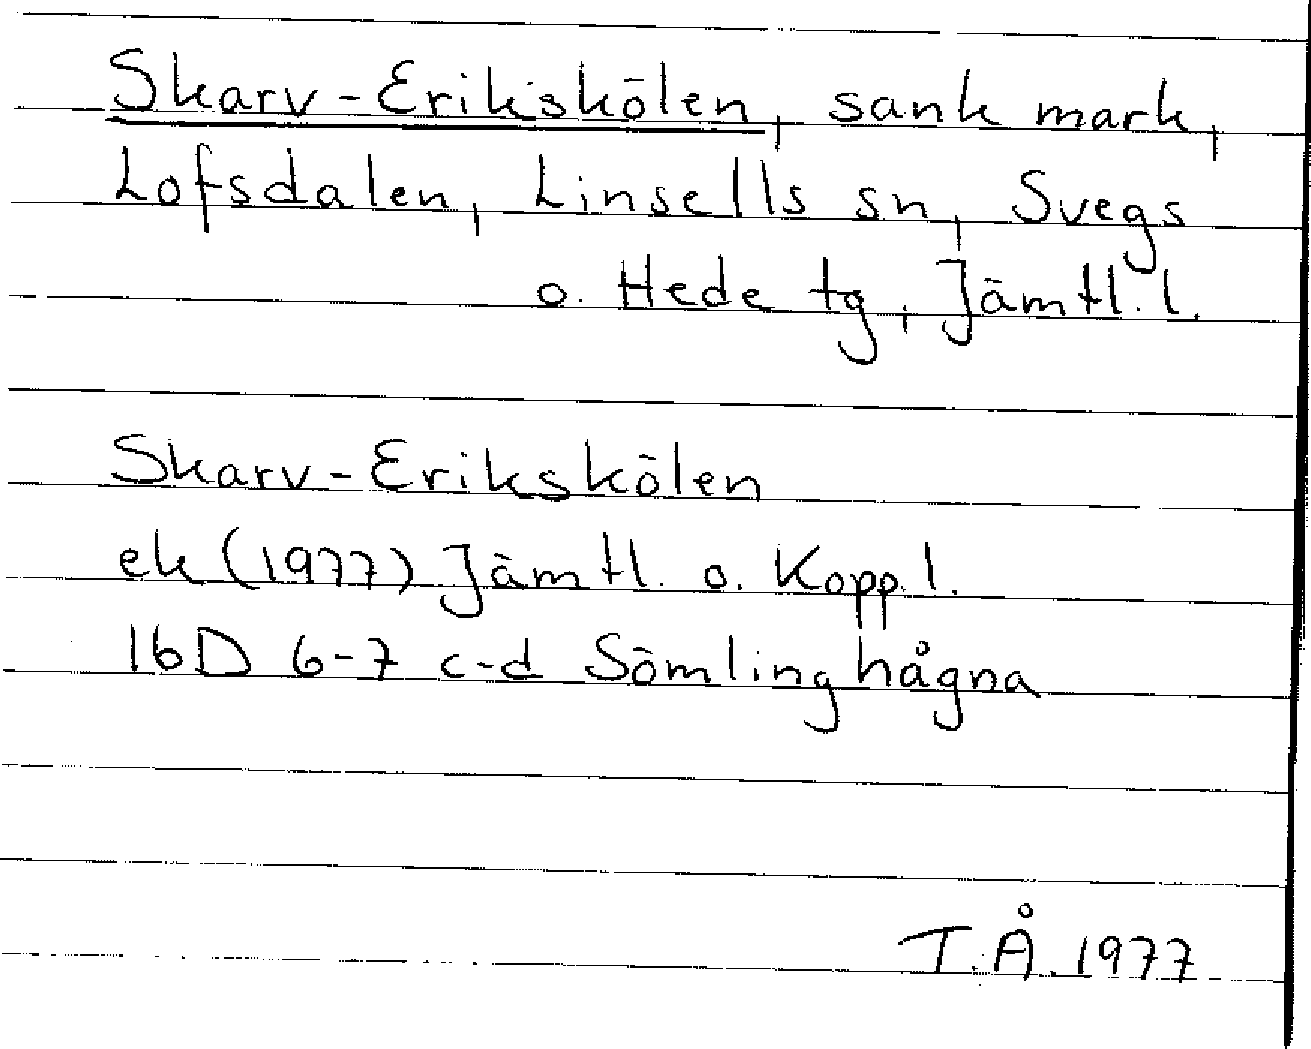 Skarv-Erikskölen, sank mark,
Lofsdalen, Linsells sn, Svegs
o. Hede tg, Jämtl. l.
Skarv-Erikskölen
ek (1977) Jämtl. o. Kopp. l.
16D 6-7 c-d Sömlinghågna
T.Å. 1977